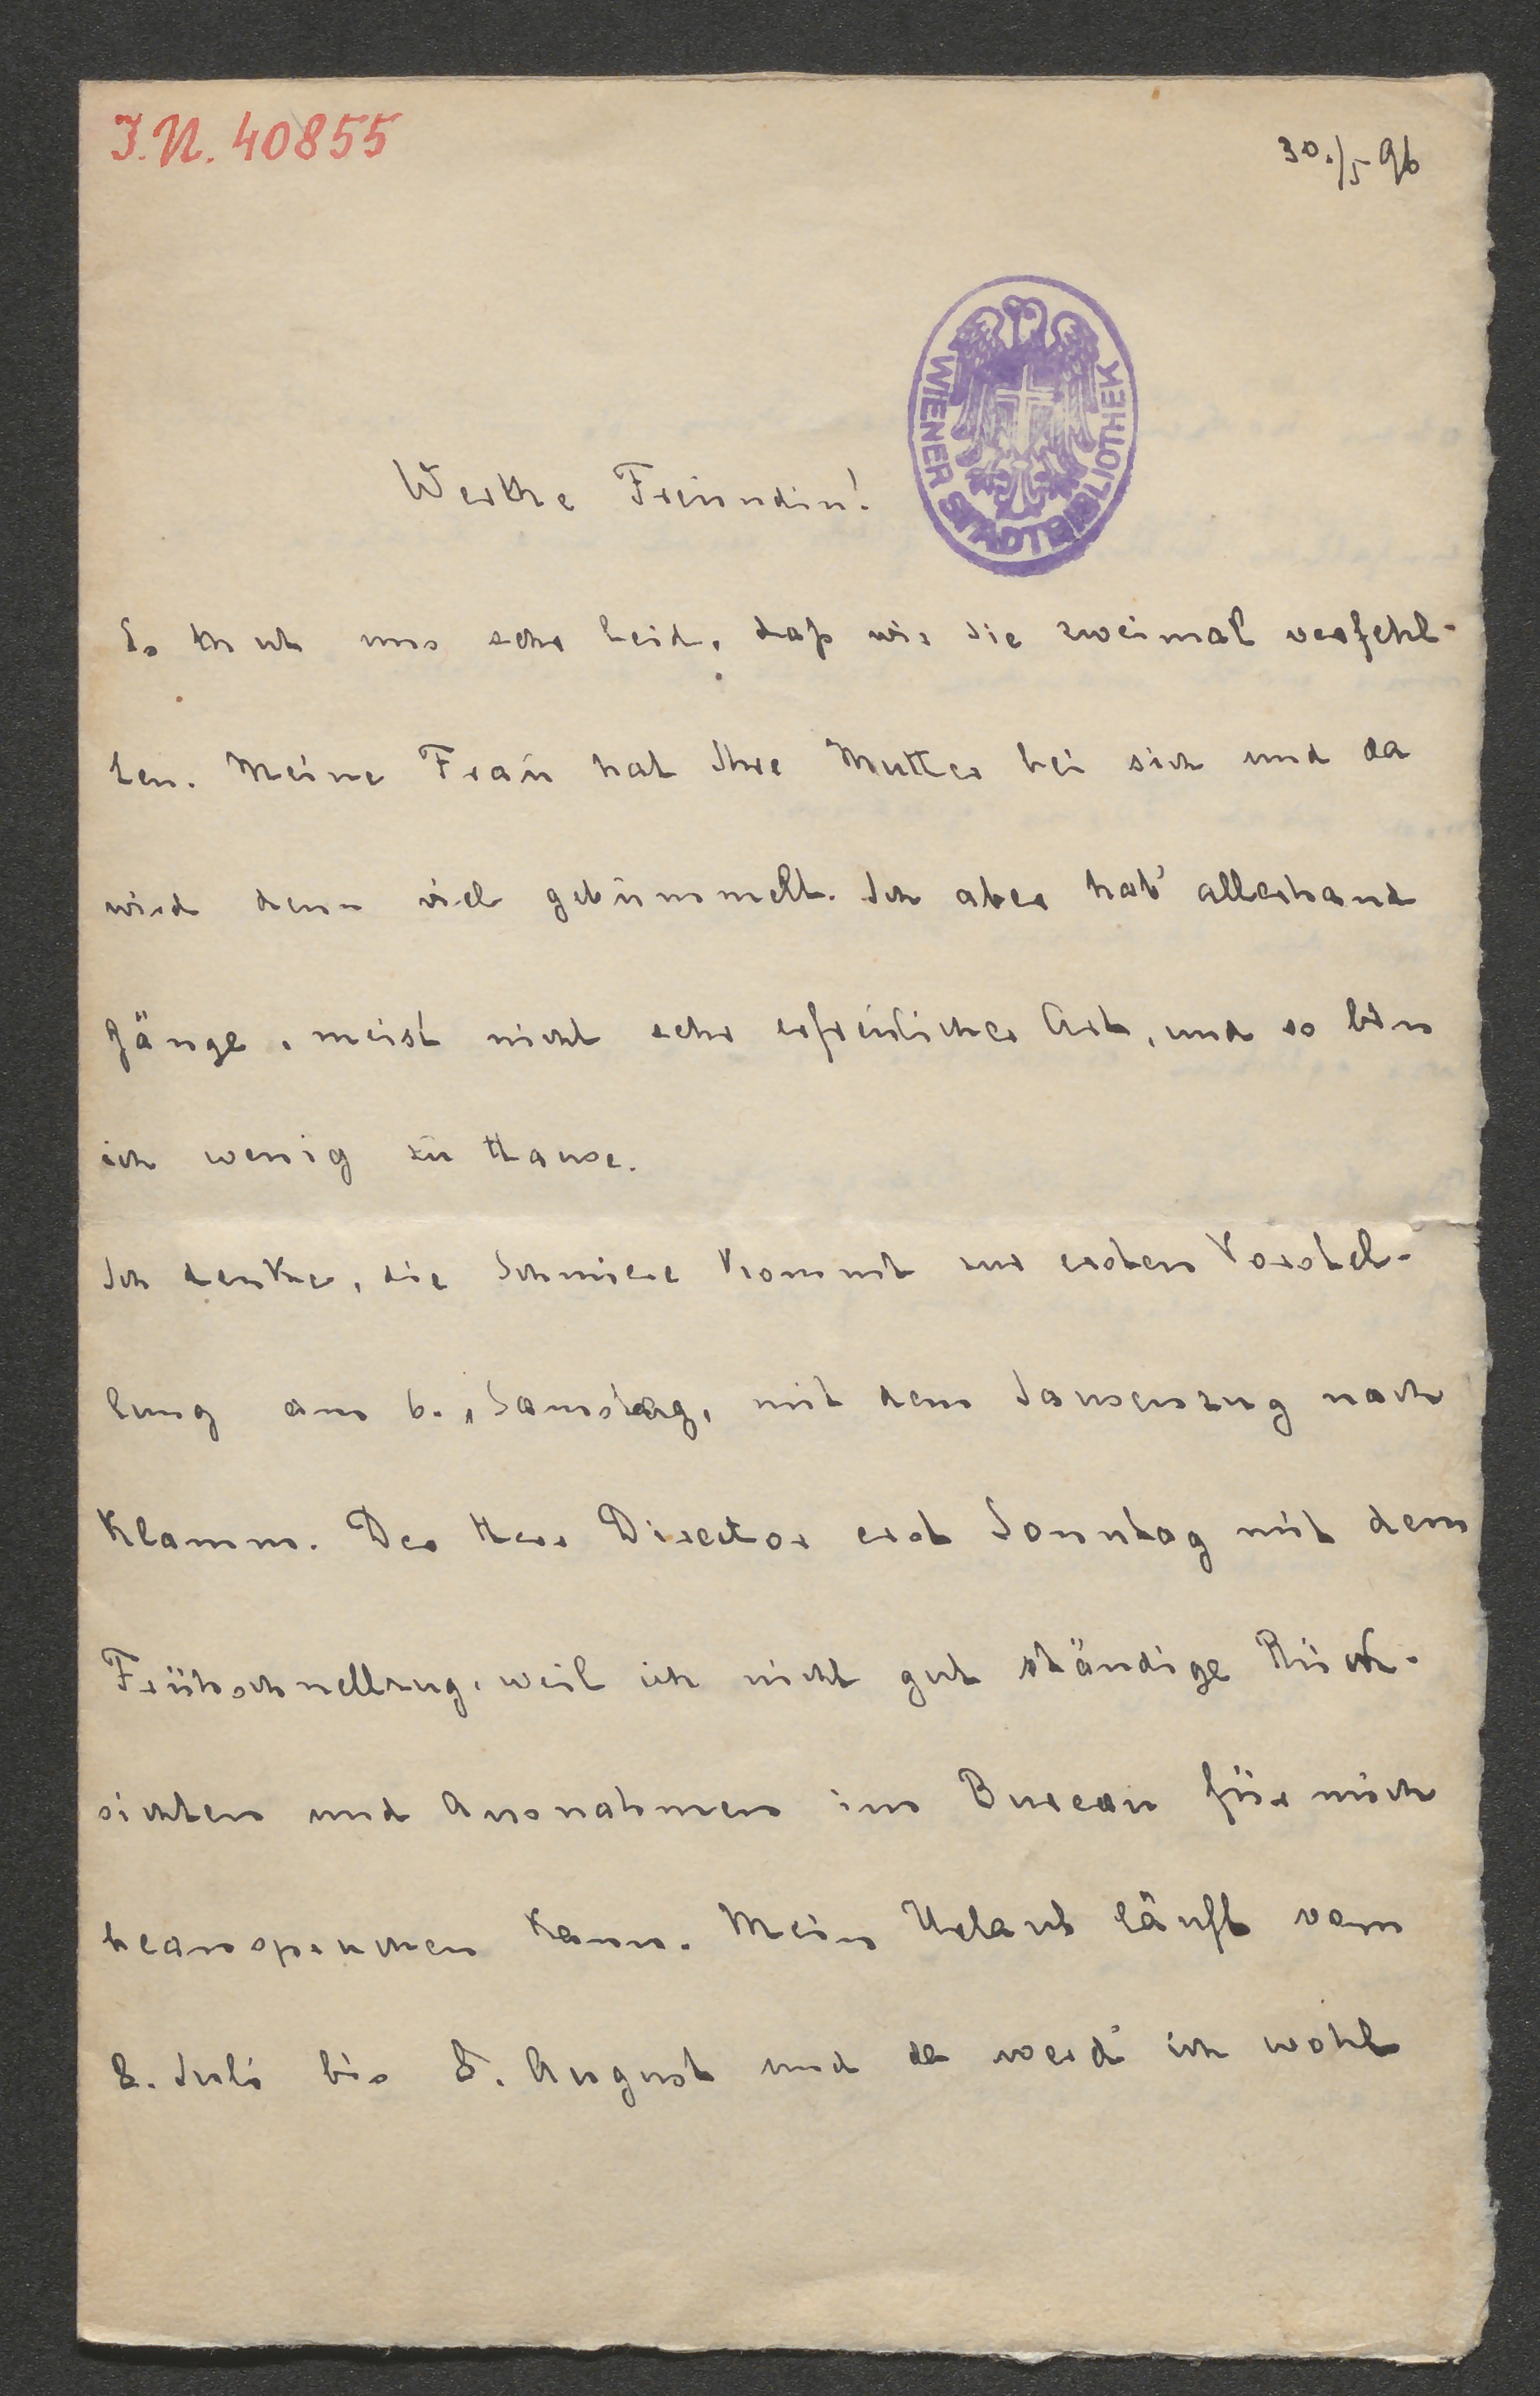 I.N. 40855
30./5 96
WIENER STADTBIBLIOTHEK
Werthe Freundin!
Es thut uns sehr leid, daß wir Sie zweimal verfehl-
ten. Meine Frau hat Ihre Mutter bei sich und da
wird denn viel gebummelt. Ich aber hab' allerhand
Gänge, meist nicht sehr erfreulicher Art, und so bin
ich wenig zu Hause.
Ich denke, die Schmiere kommt zur ersten Vorstel-
lung am 6., Samstag, mit dem Jausenzug nach
Klamm. Der Herr Director erst Sonntag mit dem
Frühschnellzug, weil ich nicht gut ständige Rück-
sichten und Ausnahmen im Bureau für mich
beanspruchen kann. Mein Urlaub läuft vom
8. Juli bis 8. August und da werd' ich wohl